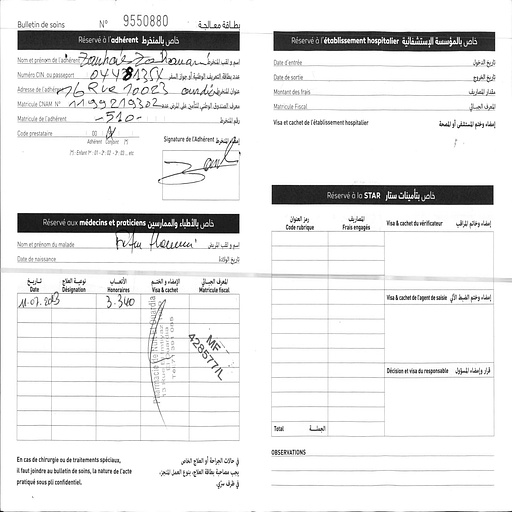 Bulletin de soins N° 9550880 بطاقة معالجة
Réservé à l'adhérent خاص بالمنخرط
Nom et prénom de l'adhérent إسم و لقب المنخرط
Numéro CIN ou passeport عدد بطاقة التعريف الوطنية أو جواز السفر
Adresse de l'adhérent 76 Rue 10023 عنوان المنخرط
Matricule CNAM N° 1199219302 معرف الصندوق الوطني للتأمين على المرض عدد
Matricule de l'adhérent -510- رقم المنخرط
Code prestataire 00
Adhérent Conjoint (*)
Signature de l'Adhérent إمضاء المنخرط
Réservé aux médecins et praticiens خاص بالأطباء والممارسين
Nom et prénom du malade إسم و لقب المريض
Date de naissance تاريخ الولادة
تاريخ نوعية العلاج الأتعاب الإمضاء و الختم المعرف الجبائي
Date Désignation Honoraires Visa & cachet Matricule fiscal
11-07-2023 3.340
MF
428577/L
En cas de chirurgie ou de traitements spéciaux,
il faut joindre au bulletin de soins, la nature de l'acte
pratiqué sous pli confidentiel.
في حالات الجراحة أو العلاج الخاص
يجب مصاحبة بطاقة العلاج، بنوع العمل المنجز،
في ظرف سري.
Réservé à l'établissement hospitalier خاص بالمؤسسة الإستشفائية
Date d'entrée تاريخ الدخول
Date de sortie تاريخ الخروج
Montant des frais مقدار المصاريف
Matricule Fiscal المعرف الجبائي
Visa et cachet de l'établissement hospitalier إمضاء وختم المستشفى أو المصحة
Réservé à la STAR خاص بتأمينات ستار
رمز العنوان المصاريف
Code rubrique Frais engagés
Visa & cachet du vérificateur إمضاء وخاتم المراقب
Visa & cachet de l'agent de saisie إمضاء وختم الضبط الآلي
Décision et visa du responsable قرار وإمضاء المسؤول
Total الجملة
OBSERVATIONS